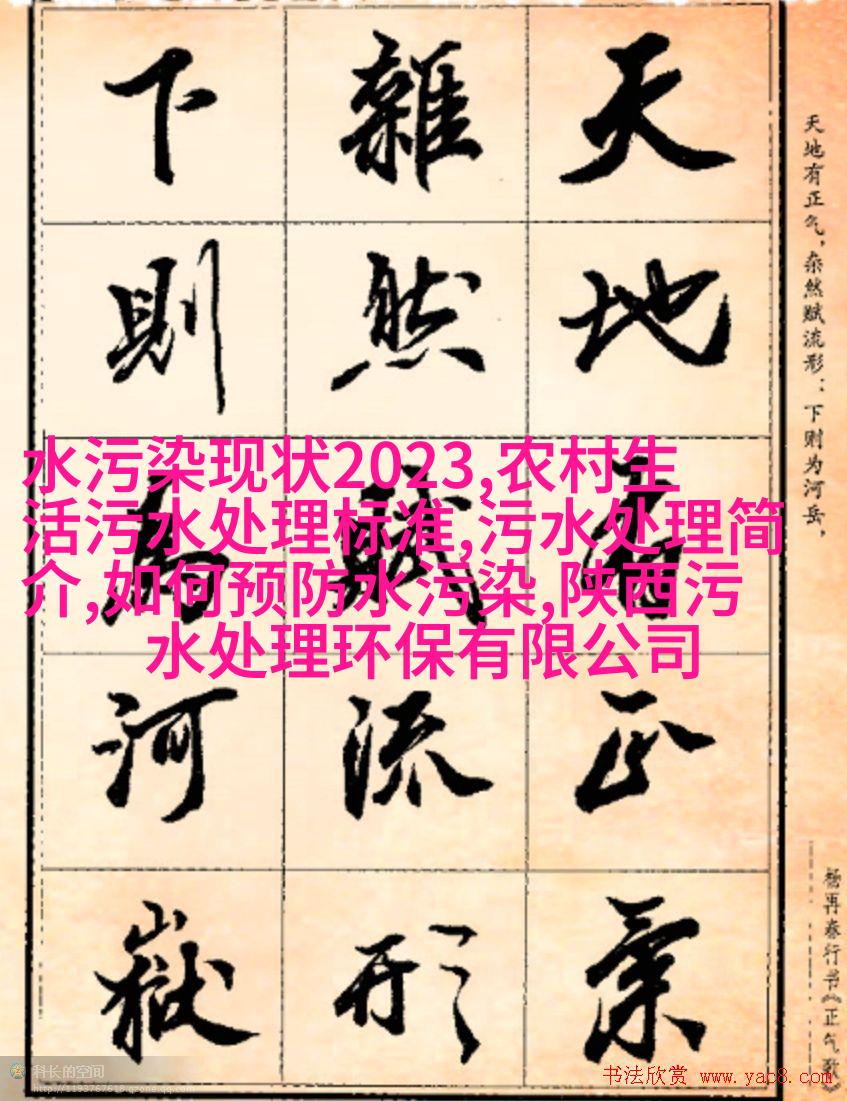 天地有正氣
雜然賦流形
下則為河嶽
天地有正气，杂然赋流形：下则为河岳，
杨再春行书《正气歌》
水污染现状2023,农村生
活污水处理标准,污水处理简
介,如何预防水污染,陕西污
水处理环保有限公司
科长的空间
http://1193767618.qzone.qq.com
书法欣赏 www.yac8.com